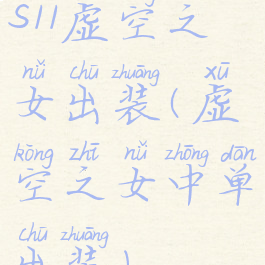 S11虚空之
nǚ chū zhuāng xū
女出装(虚
kōng zhī nǚ zhōng dān
空之女中单
chū zhuāng
出装)